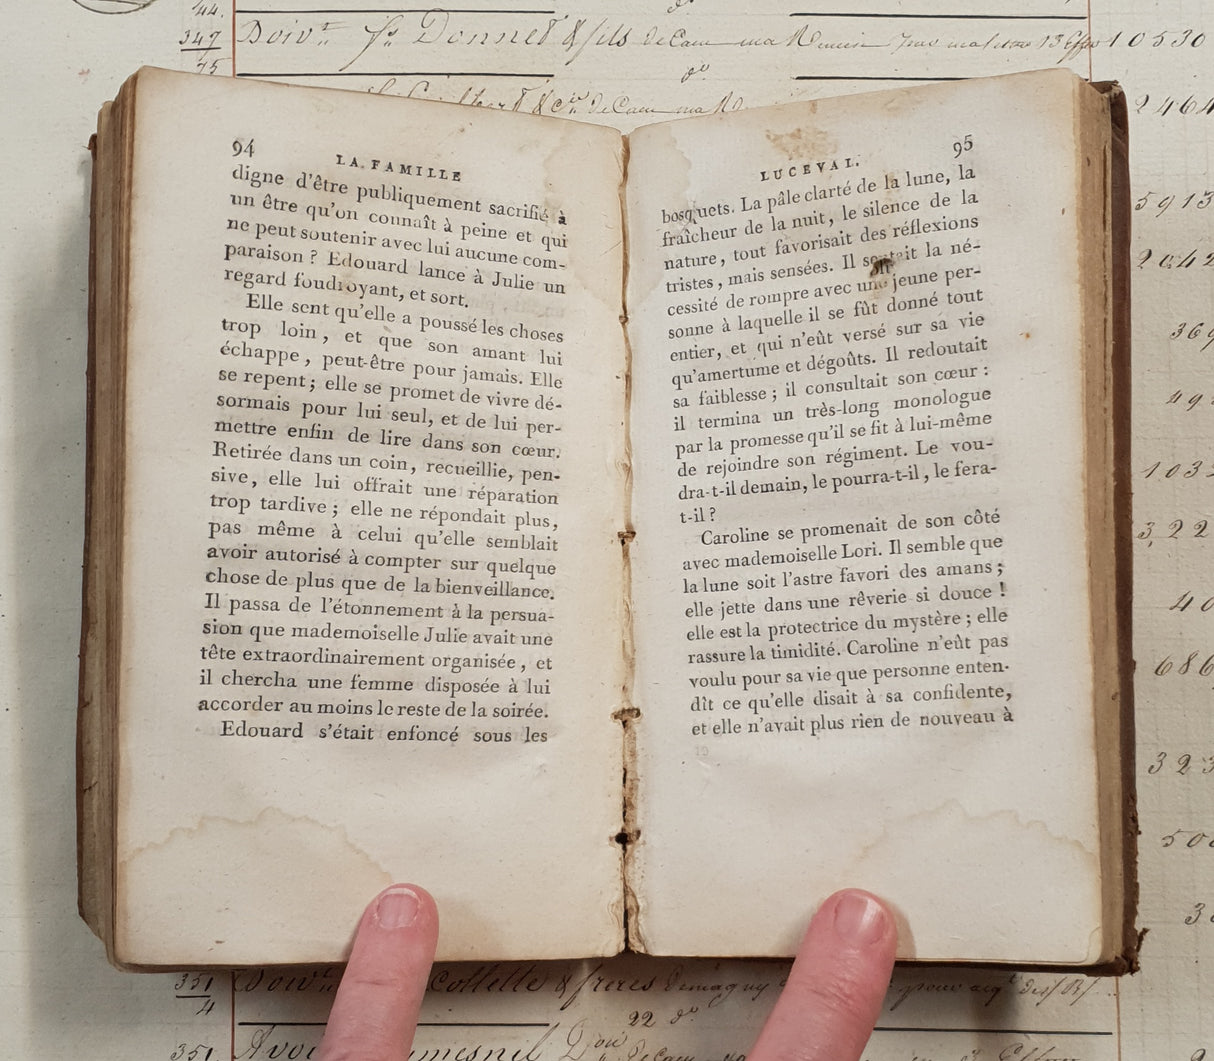 44.
347
Doiv.t Donnet & fils de Caen 10530
75
d.o
& c.ie de Caen
2464
94
LA FAMILLE
digne d'être publiquement sacrifié à
un être qu'on connaît à peine et qui
ne peut soutenir avec lui aucune com-
paraison ? Edouard lance à Julie un
regard foudroyant, et sort.
Elle sent qu'elle a poussé les choses
trop loin, et que son amant lui
échappe, peut-être pour jamais. Elle
se repent ; elle se promet de vivre dé-
sormais pour lui seul, et de lui per-
mettre enfin de lire dans son cœur.
Retirée dans un coin, recueillie, pen-
sive, elle lui offrait une réparation
trop tardive ; elle ne répondait plus,
pas même à celui qu'elle semblait
avoir autorisé à compter sur quelque
chose de plus que de la bienveillance.
Il passa de l'étonnement à la persua-
sion que mademoiselle Julie avait une
tête extraordinairement organisée, et
il chercha une femme disposée à lui
accorder au moins le reste de la soirée.
Edouard s'était enfoncé sous les
LUCEVAL.
95
bosquets. La pâle clarté de la lune, la
fraîcheur de la nuit, le silence de la
nature, tout favorisait des réflexions
tristes, mais sensées. Il sentait la né-
cessité de rompre avec une jeune per-
sonne à laquelle il se fût donné tout
entier, et qui n'eût versé sur sa vie
qu'amertume et dégoûts. Il redoutait
sa faiblesse ; il consultait son cœur :
il termina un très-long monologue
par la promesse qu'il se fit à lui-même
de rejoindre son régiment. Le vou-
dra-t-il demain, le pourra-t-il, le fera-
t-il ?
Caroline se promenait de son côté
avec mademoiselle Lori. Il semble que
la lune soit l'astre favori des amans ;
elle jette dans une rêverie si douce !
elle est la protectrice du mystère ; elle
rassure la timidité. Caroline n'eût pas
voulu pour sa vie que personne enten-
dît ce qu'elle disait à sa confidente,
et elle n'avait plus rien de nouveau à
5913
2042
369
49
1032
3,22
40
686
323
50
3
351
Doiv.t Collette & freres
4
22 d.o
351
Avoir